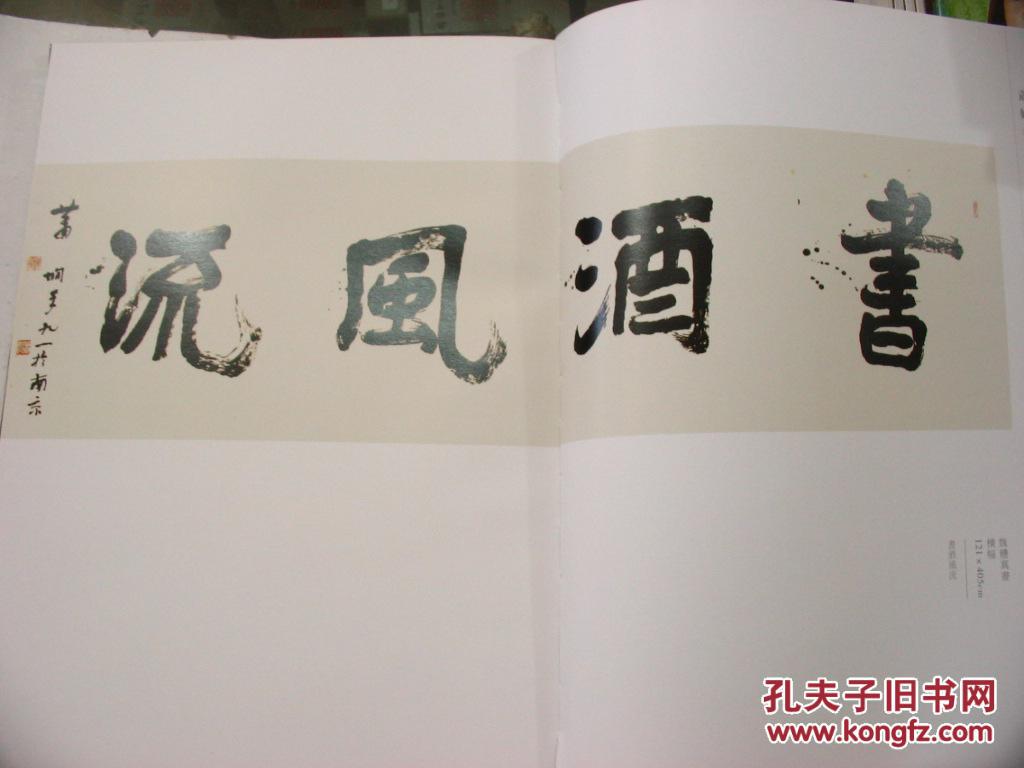 書酒風流
蕭嫻年九一於南京
魏體真書
橫幅
121×405cm
書酒風流
孔夫子旧书网
www.kongfz.com